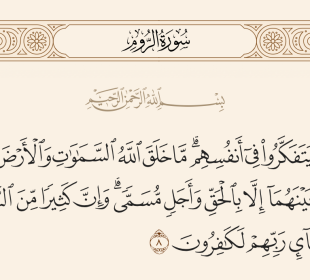 سُورَةُ الرُّومِ
بِسْمِ اللَّهِ الرَّحْمَٰنِ الرَّحِيمِ
يَتَفَكَّرُوا۟ فِىٓ أَنفُسِهِم ۗ مَّا خَلَقَ ٱللَّهُ ٱلسَّمَـٰوَٰتِ وَٱلْأَرْضَ
بَيْنَهُمَآ إِلَّا بِٱلْحَقِّ وَأَجَلٍ مُّسَمًّى ۗ وَإِنَّ كَثِيرًا مِّنَ
رَبِّهِمْ لَكَـٰفِرُونَ ٨